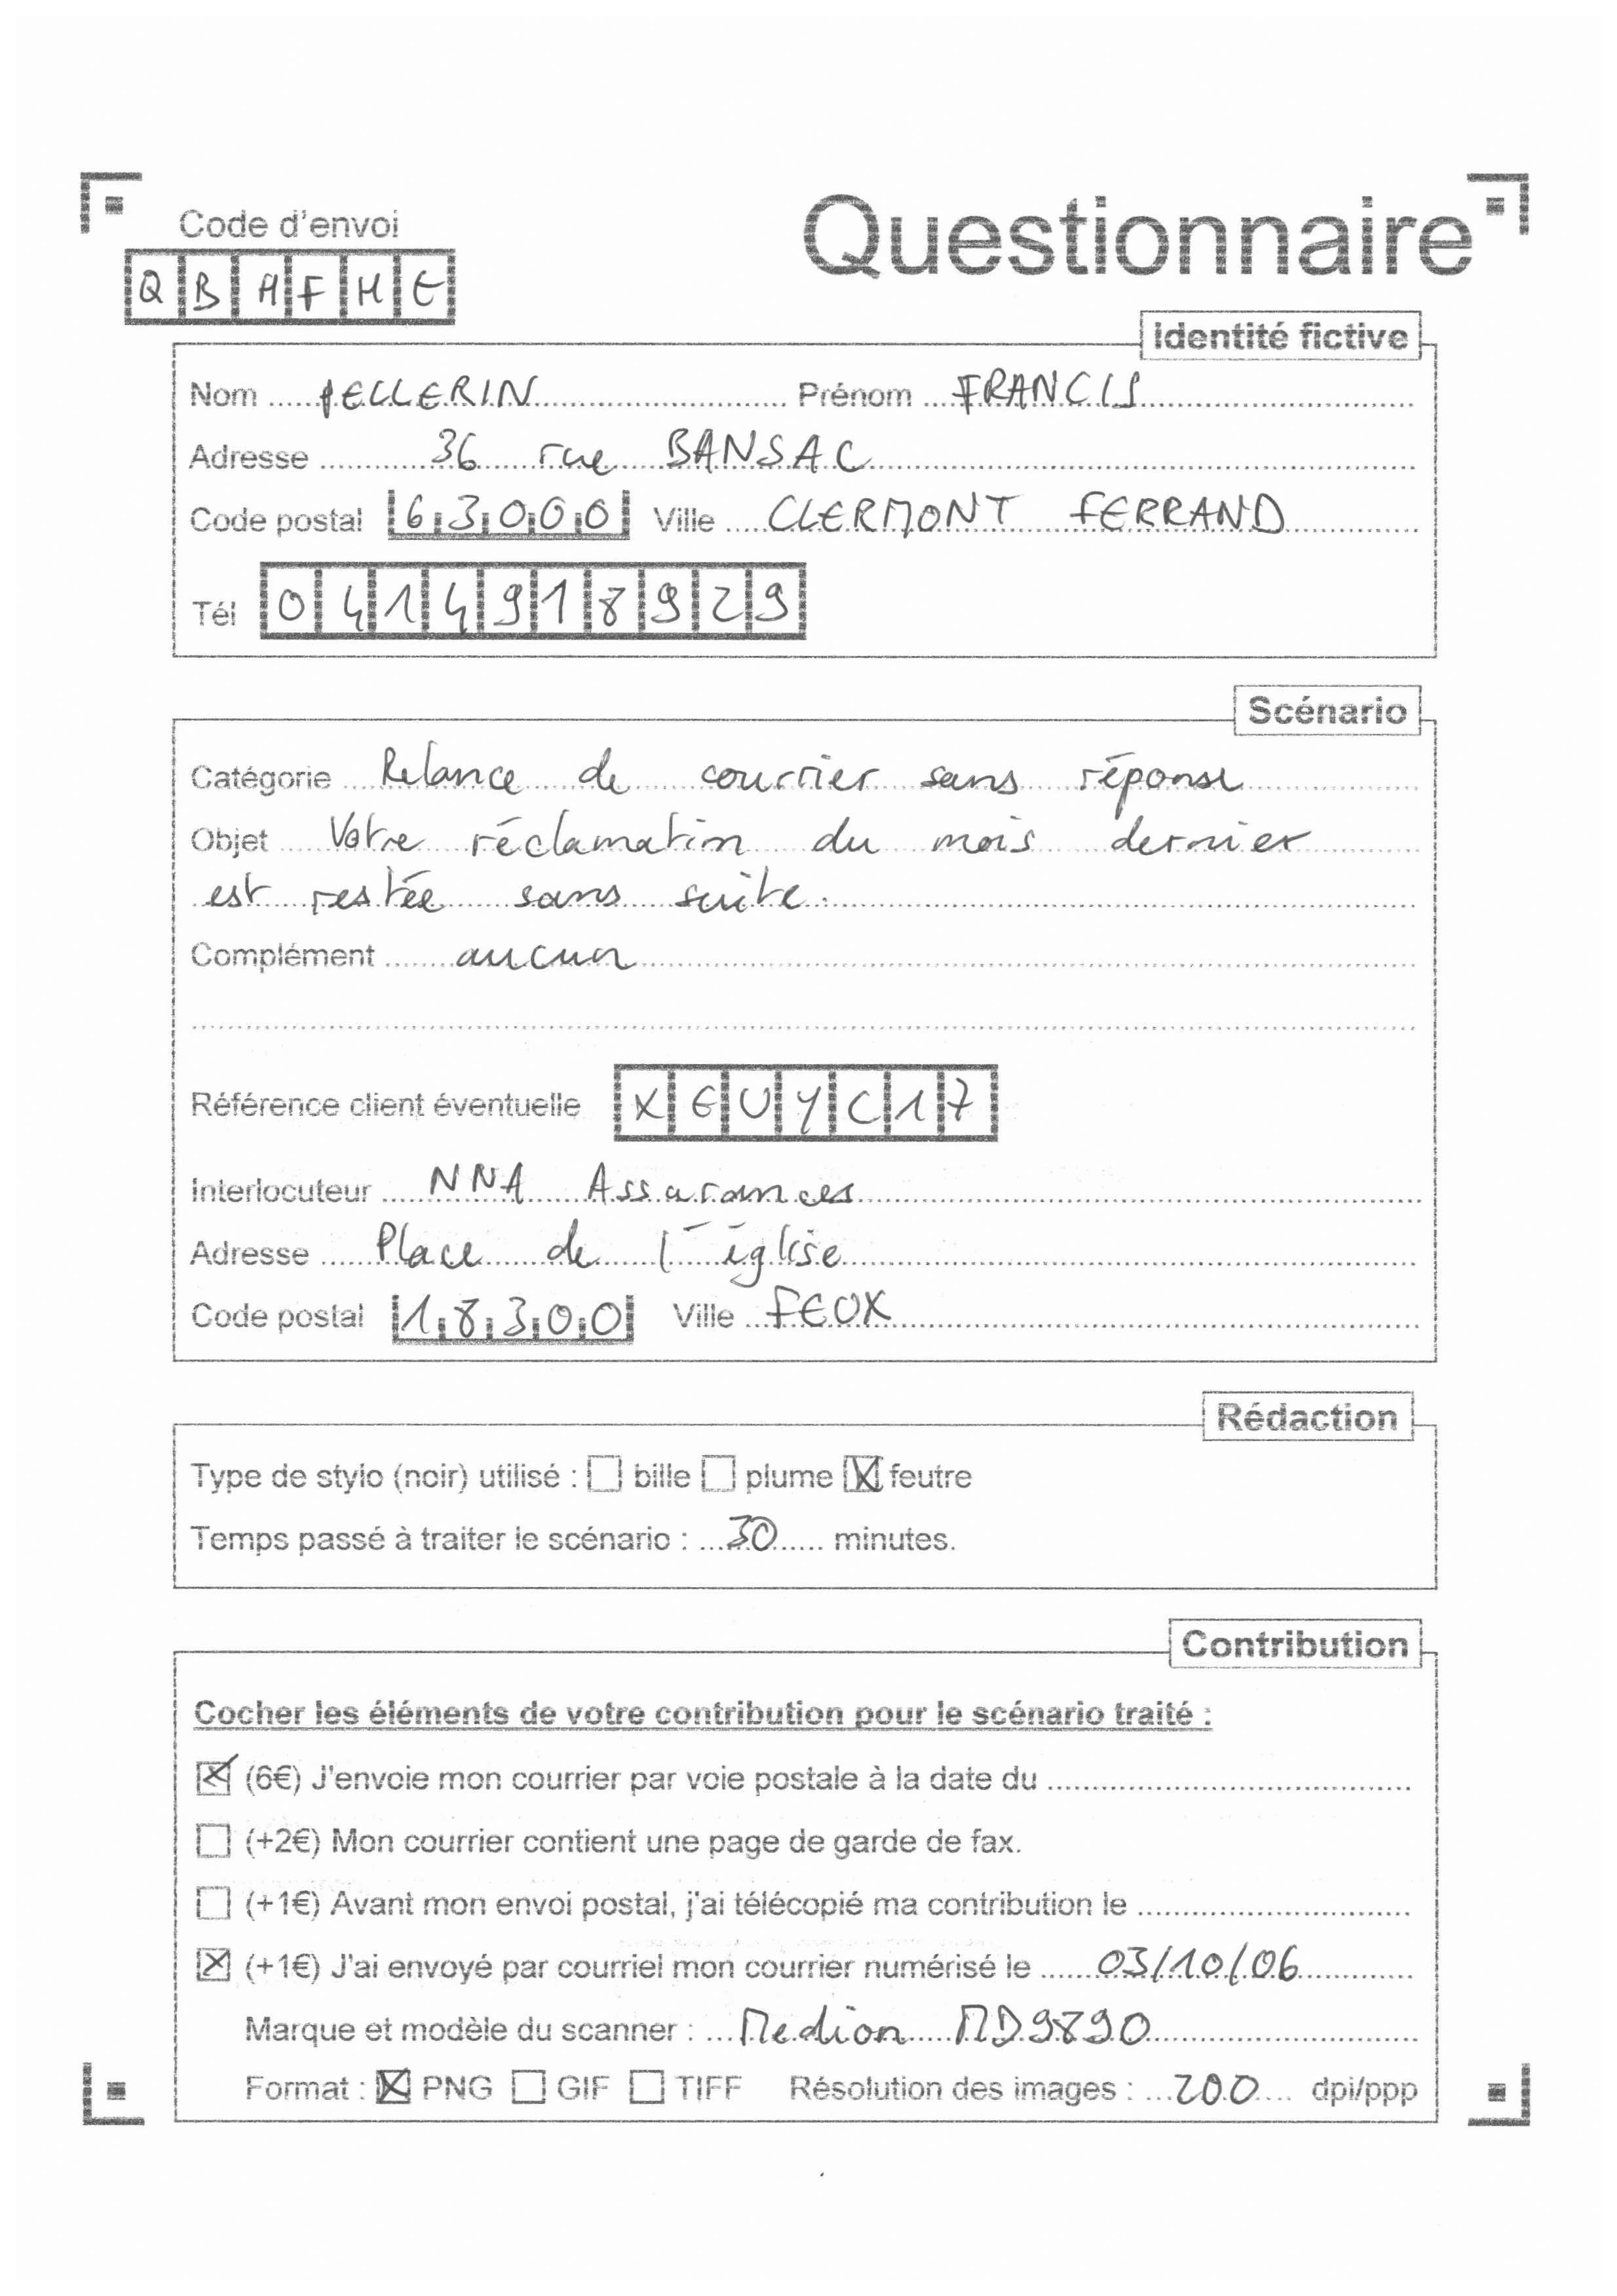 Code d'envoi
Questionnaire
QBAFHE
Identité fictive
Nom PELLERIN Prénom FRANCIS
Adresse 36 rue BANSAC
Code postal 63000 Ville CLERMONT FERRAND
Tél 0414918929
Scénario
Catégorie Relance de courrier sans réponse
Objet Votre réclamation du mois dernier
est restée sans suite.
Complément aucun
Référence client éventuelle XEUYC17
Interlocuteur NNA Assurances
Adresse Place de l'église
Code postal 18300 Ville FEUX
Rédaction
Type de stylo (noir) utilisé : ☐ bille ☐ plume ☒ feutre
Temps passé à traiter le scénario : 30 minutes.
Contribution
Cocher les éléments de votre contribution pour le scénario traité :
☒ (6€) J'envoie mon courrier par voie postale à la date du
☐ (+2€) Mon courrier contient une page de garde de fax.
☐ (+1€) Avant mon envoi postal, j'ai télécopié ma contribution le
☒ (+1€) J'ai envoyé par courriel mon courrier numérisé le 03/10/06
Marque et modèle du scanner : Medion MD9890
Format : ☒ PNG ☐ GIF ☐ TIFF Résolution des images : 200 dpi/ppp